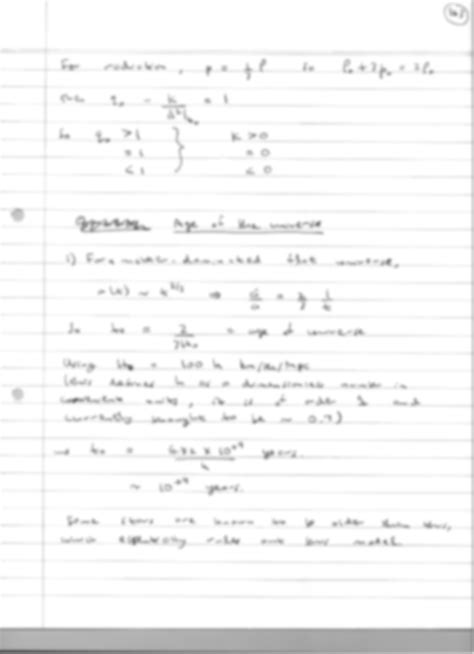 For radiation, p = 1/3 ρ so ρ₀ + 3p₀ = 2ρ₀
q₀ - k/ȧ²|t₀ = 1
So q₀ > 1 } k > 0
= 1 = 0
< 1 < 0
Age of the universe
i) For a matter-dominated flat universe,
a(t) ~ t^2/3 ⇒ ȧ/a = 2/3 1/t
So t₀ = 2/3H₀ = age of universe
Using H₀ = 100 h km/sec/Mpc
(this defines h as a dimensionless number in
convenient units, it is of order 1 and
currently thought to be ~ 0.7)
→ t₀ = × 10^+9 / h years.
~ 10^+9 years.
Some stars are known to be older than this,
which essentially rules out this model.